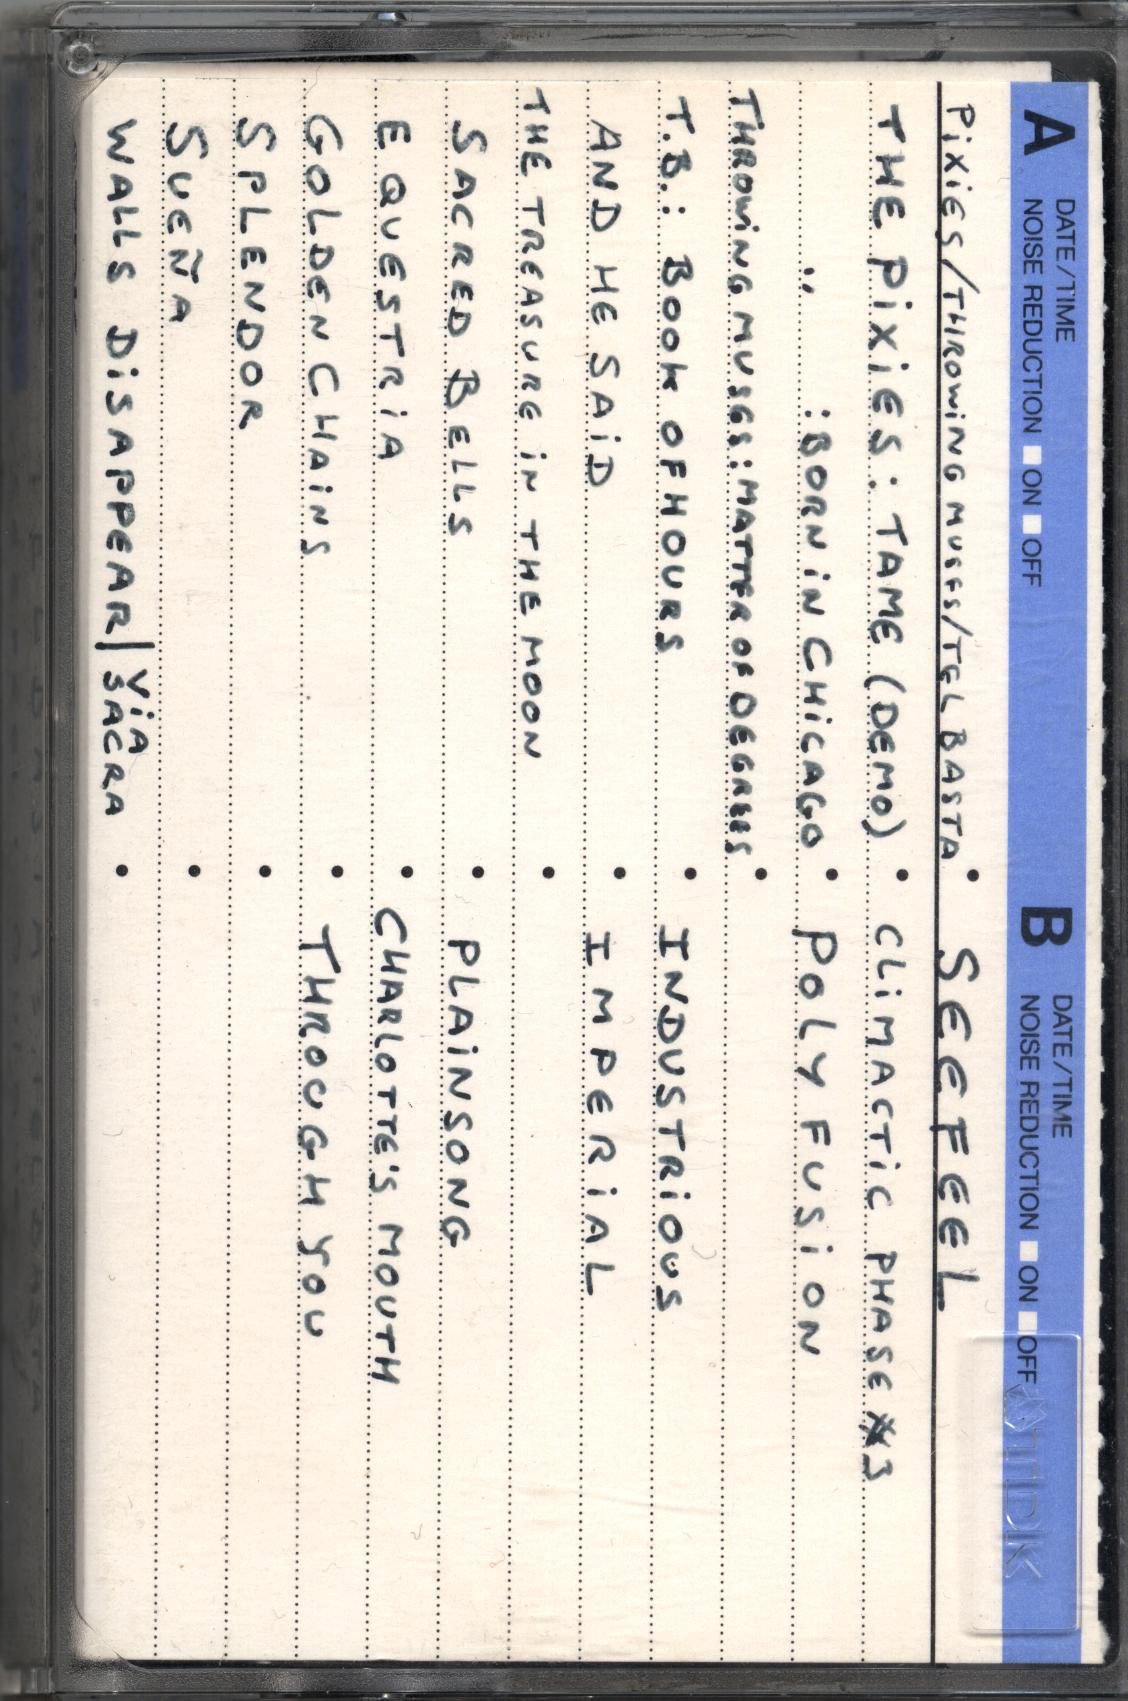 A DATE/TIME
NOISE REDUCTION ■ ON ■ OFF
PIXIES/THROWING MUSES/TEL BASTA
THE PIXIES: TAME (DEMO)
" : BORN IN CHICAGO
THROWING MUSES: MATTER OF DEGREES
T.B.: BOOK OF HOURS
AND HE SAID
THE TREASURE IN THE MOON
SACRED BELLS
EQUESTRIA
GOLDEN CHAINS
SPLENDOR
SUEÑA
WALLS DISAPPEAR | VIA SACRA
B DATE/TIME
NOISE REDUCTION ■ ON ■ OFF
SEEFEEL
CLIMACTIC PHASE #3
POLYFUSION
INDUSTRIOUS
IMPERIAL
PLAINSONG
CHARLOTTE'S MOUTH
THROUGH YOU
TDK